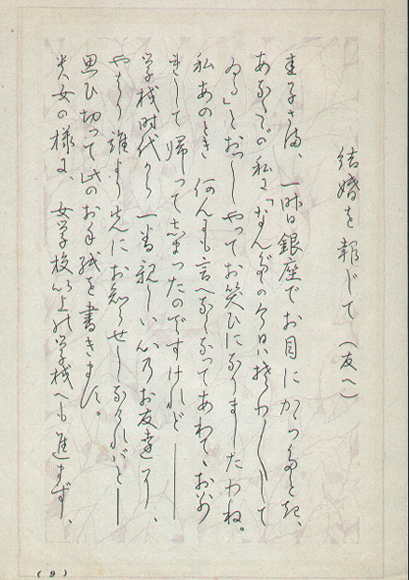 結婚を報じて (友へ)
圭子さま、一昨日銀座でお目にかゝつたとき、
あなた、の私に「なんだの今日はそわ〱して
ゐる」とおつしやつてお笑ひになりましたわね。
私あのとき何んにも言へなくなつてあわてゝお別
れして帰つて志まつたのですけれど――
学校時代から一番親しい心のお友達ですし、
やはり誰より先にお知らせしなければと――
思ひ切つて此のお手紙を書きました。
貴女の様に、女学校以上の学校へも進まず、
(9)